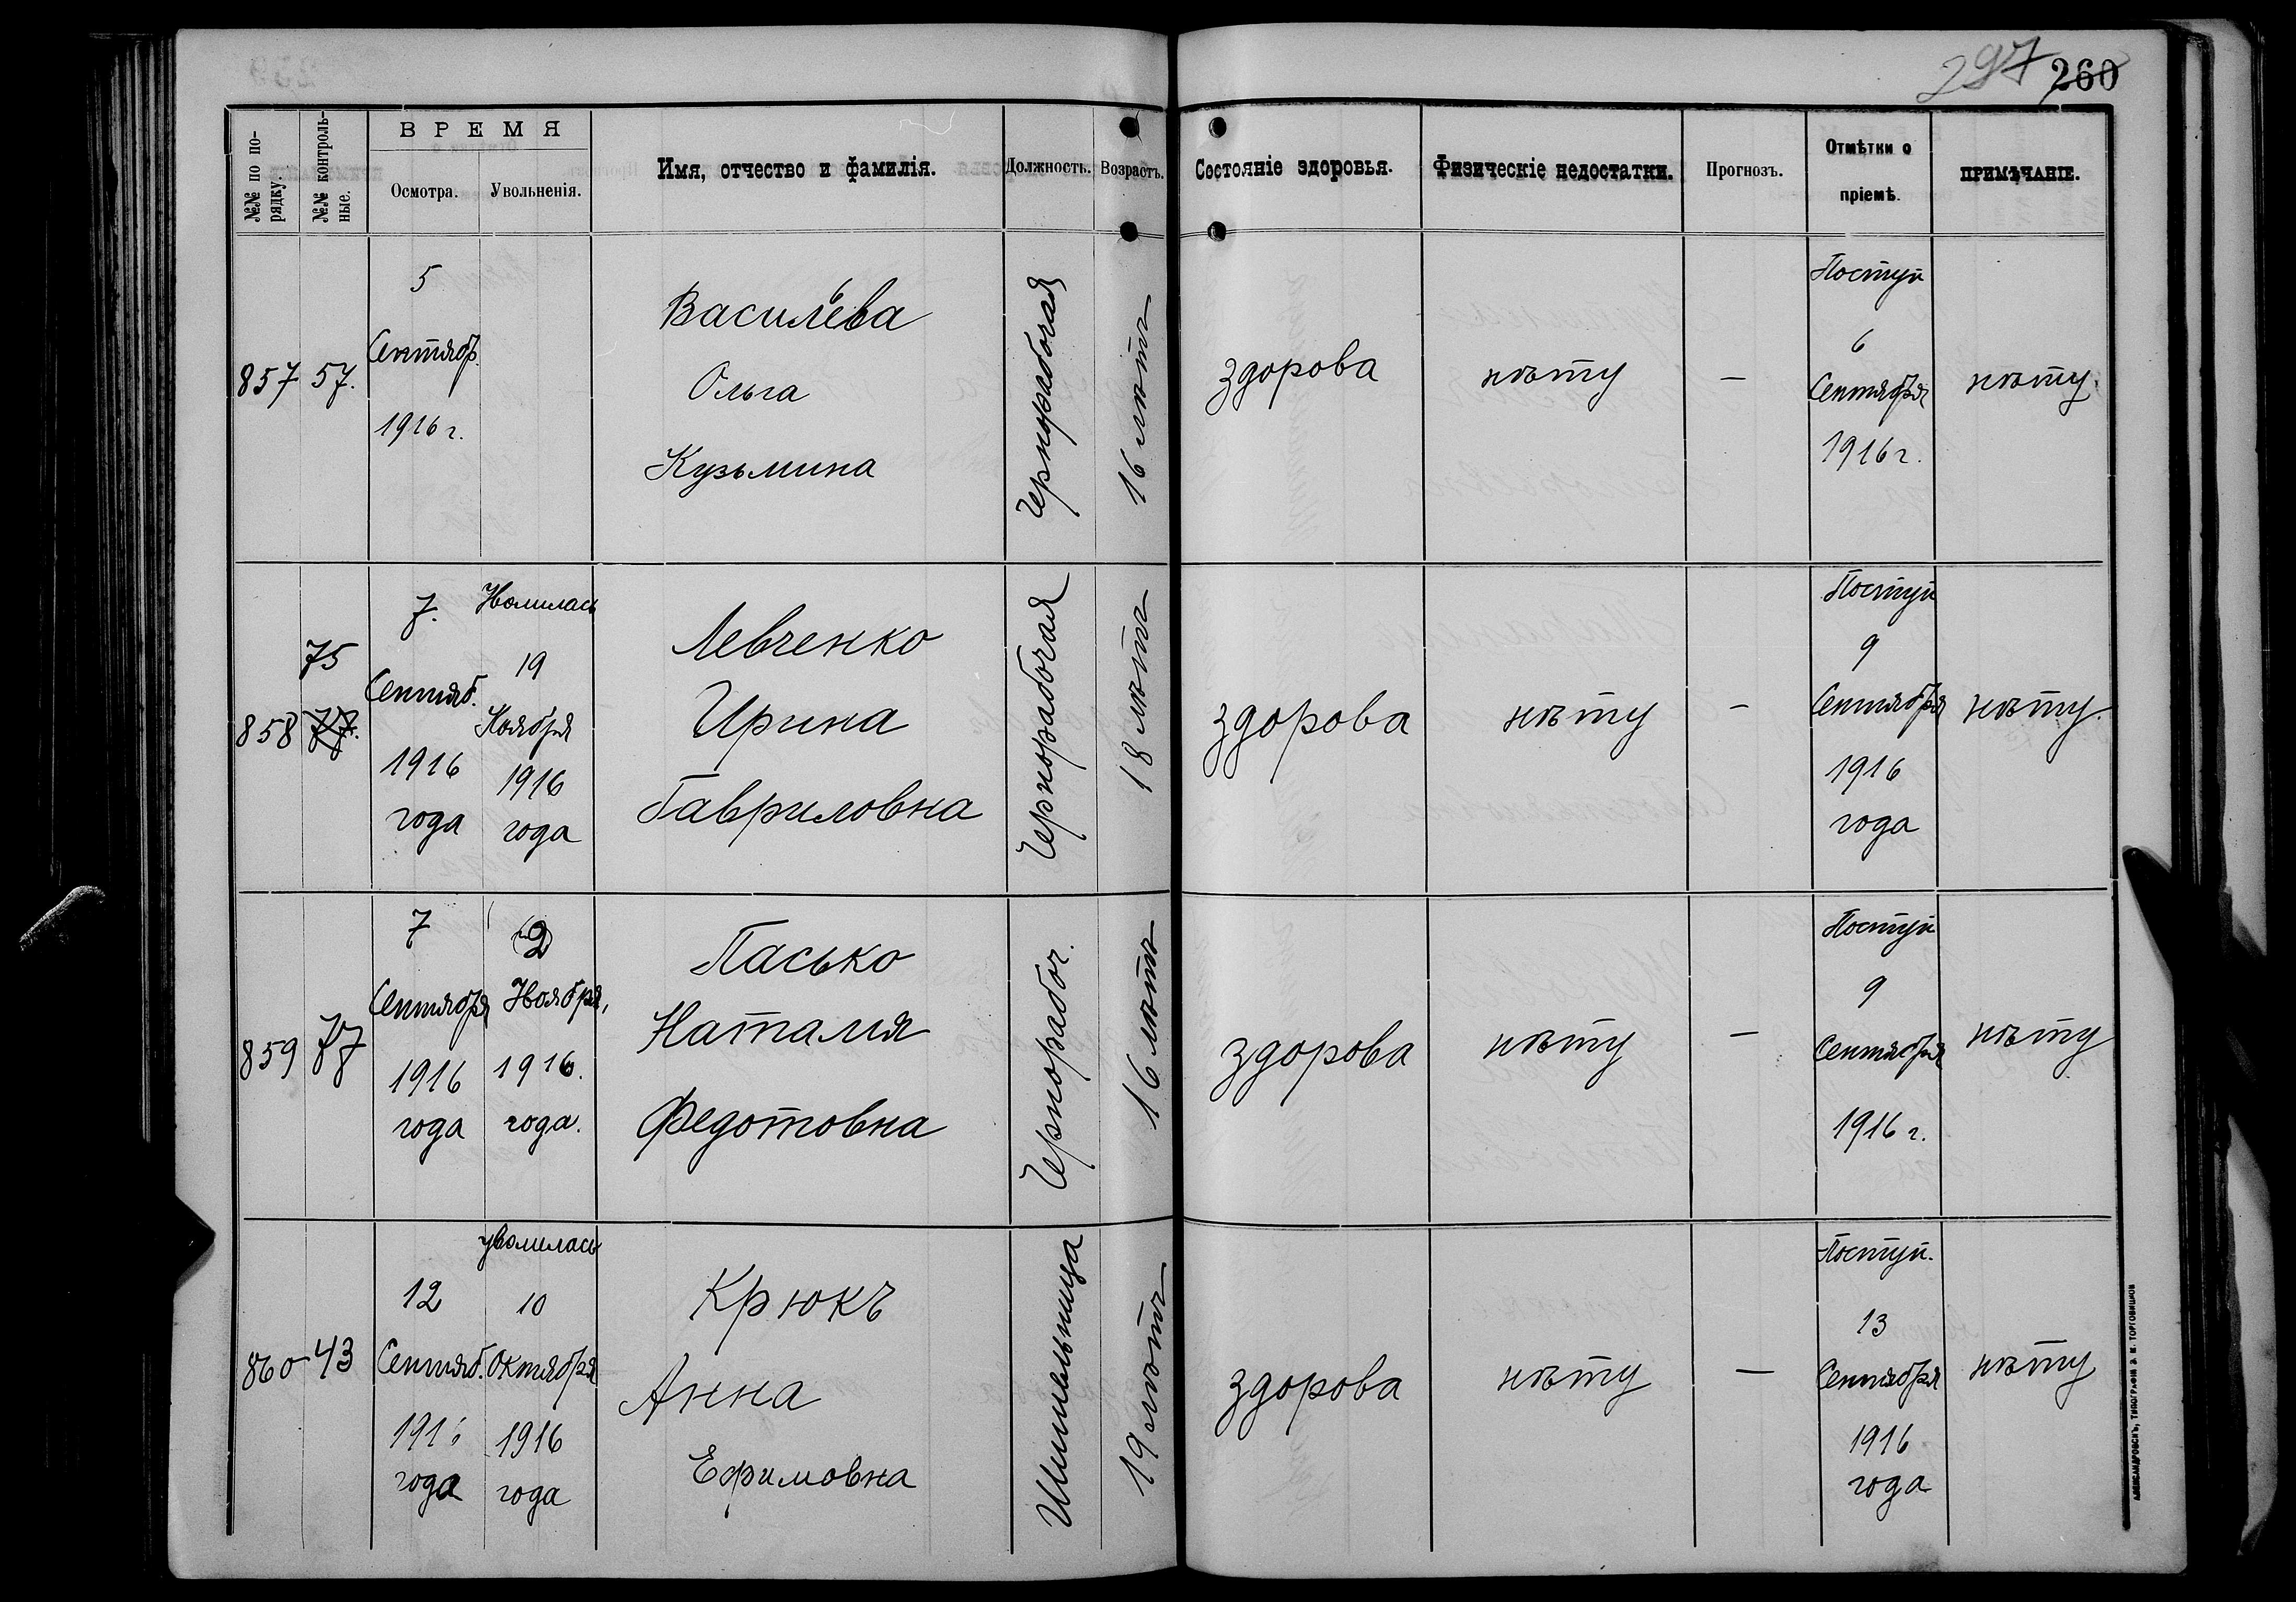 297 260
№№ по по-
рядку.
№№ контроль-
ные.
ВРЕМЯ
Осмотра.
Увольненія.
Имя, отчество и фамилія.
Должность.
Возрастъ.
Состояніе здоровья.
Физическіе недостатки.
Прогнозъ.
Отмѣтки о
пріемѣ.
ПРИМѢЧАНІЕ.
857
57.
5
Сентябр.
1916 г.
Васильева
Ольга
Кузьмина
Чернорабочая
16 лѣтъ
здорова
нѣту
—
Поступ
6
Сентября
1916 г.
нѣту
858
75
7.
Сентяб.
1916
года
19
Ноября
1916
года
Левченко
Ирина
Гавриловна
Чернорабочая
18 лѣтъ
здорова
нѣту
—
Поступ
9
Сентября
1916
года
нѣту.
859
77
7
Сентября
1916
года
2
Ноября,
1916.
года.
Пасько
Наталия
Федотовна
Чернорабоч.
16 лѣтъ
здорова
нѣту
—
Поступ
9
Сентября
1916 г.
нѣту
860
43
12
Сентяб.
1916
года
уволилась
10
Октября
1916
года
Крюкъ
Анна
Ефимовна
Шпильница
19 лѣтъ
здорова
нѣту
—
Поступ.
13
Сентября
1916
года
нѣту
АЛЕКСАНДРОВСКЪ, ТИПОГРАФІЯ Э. И. ТОРГОВИЦКОВ